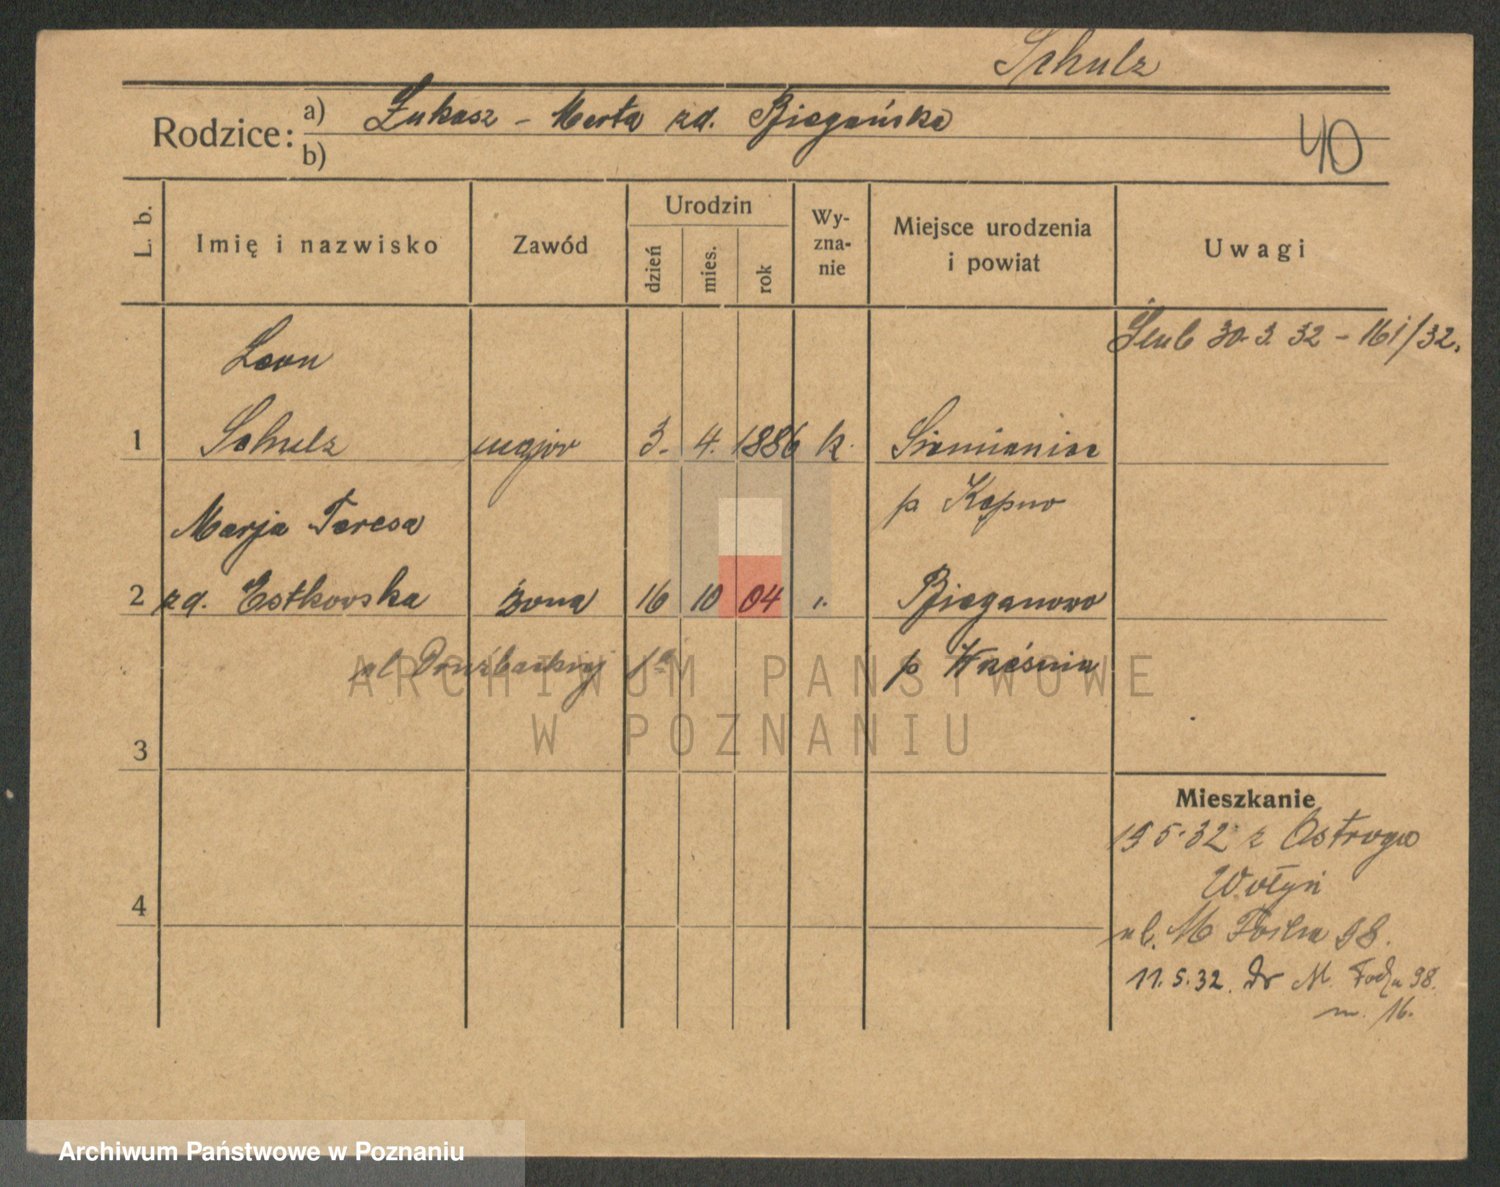 Schulz
Rodzice: a) Łukasz - Marta zd. Biegańska
b)
40
L. b.
Imię i nazwisko
Zawód
Urodzin
dzień
mies.
rok
Wy-
zna-
nie
Miejsce urodzenia
i powiat
Uwagi
Ślub 30.3.32 - 161/32.
Leon
1 Schulz major 3. 4. 1886 k. Siemianice
p Kępno
Marja Teresa
2 zd. Estkowska żona 16 10 04 ,. Bieganowo
p Września
ul Drużbackiej
3
4
ARCHIWUM PAŃSTWOWE
W POZNANIU
Mieszkanie
5.32 z Ostroga
Wołyń
ul. M Focha 98.
11.5.32. M. Focha 98.
m. 16.
Archiwum Państwowe w Poznaniu